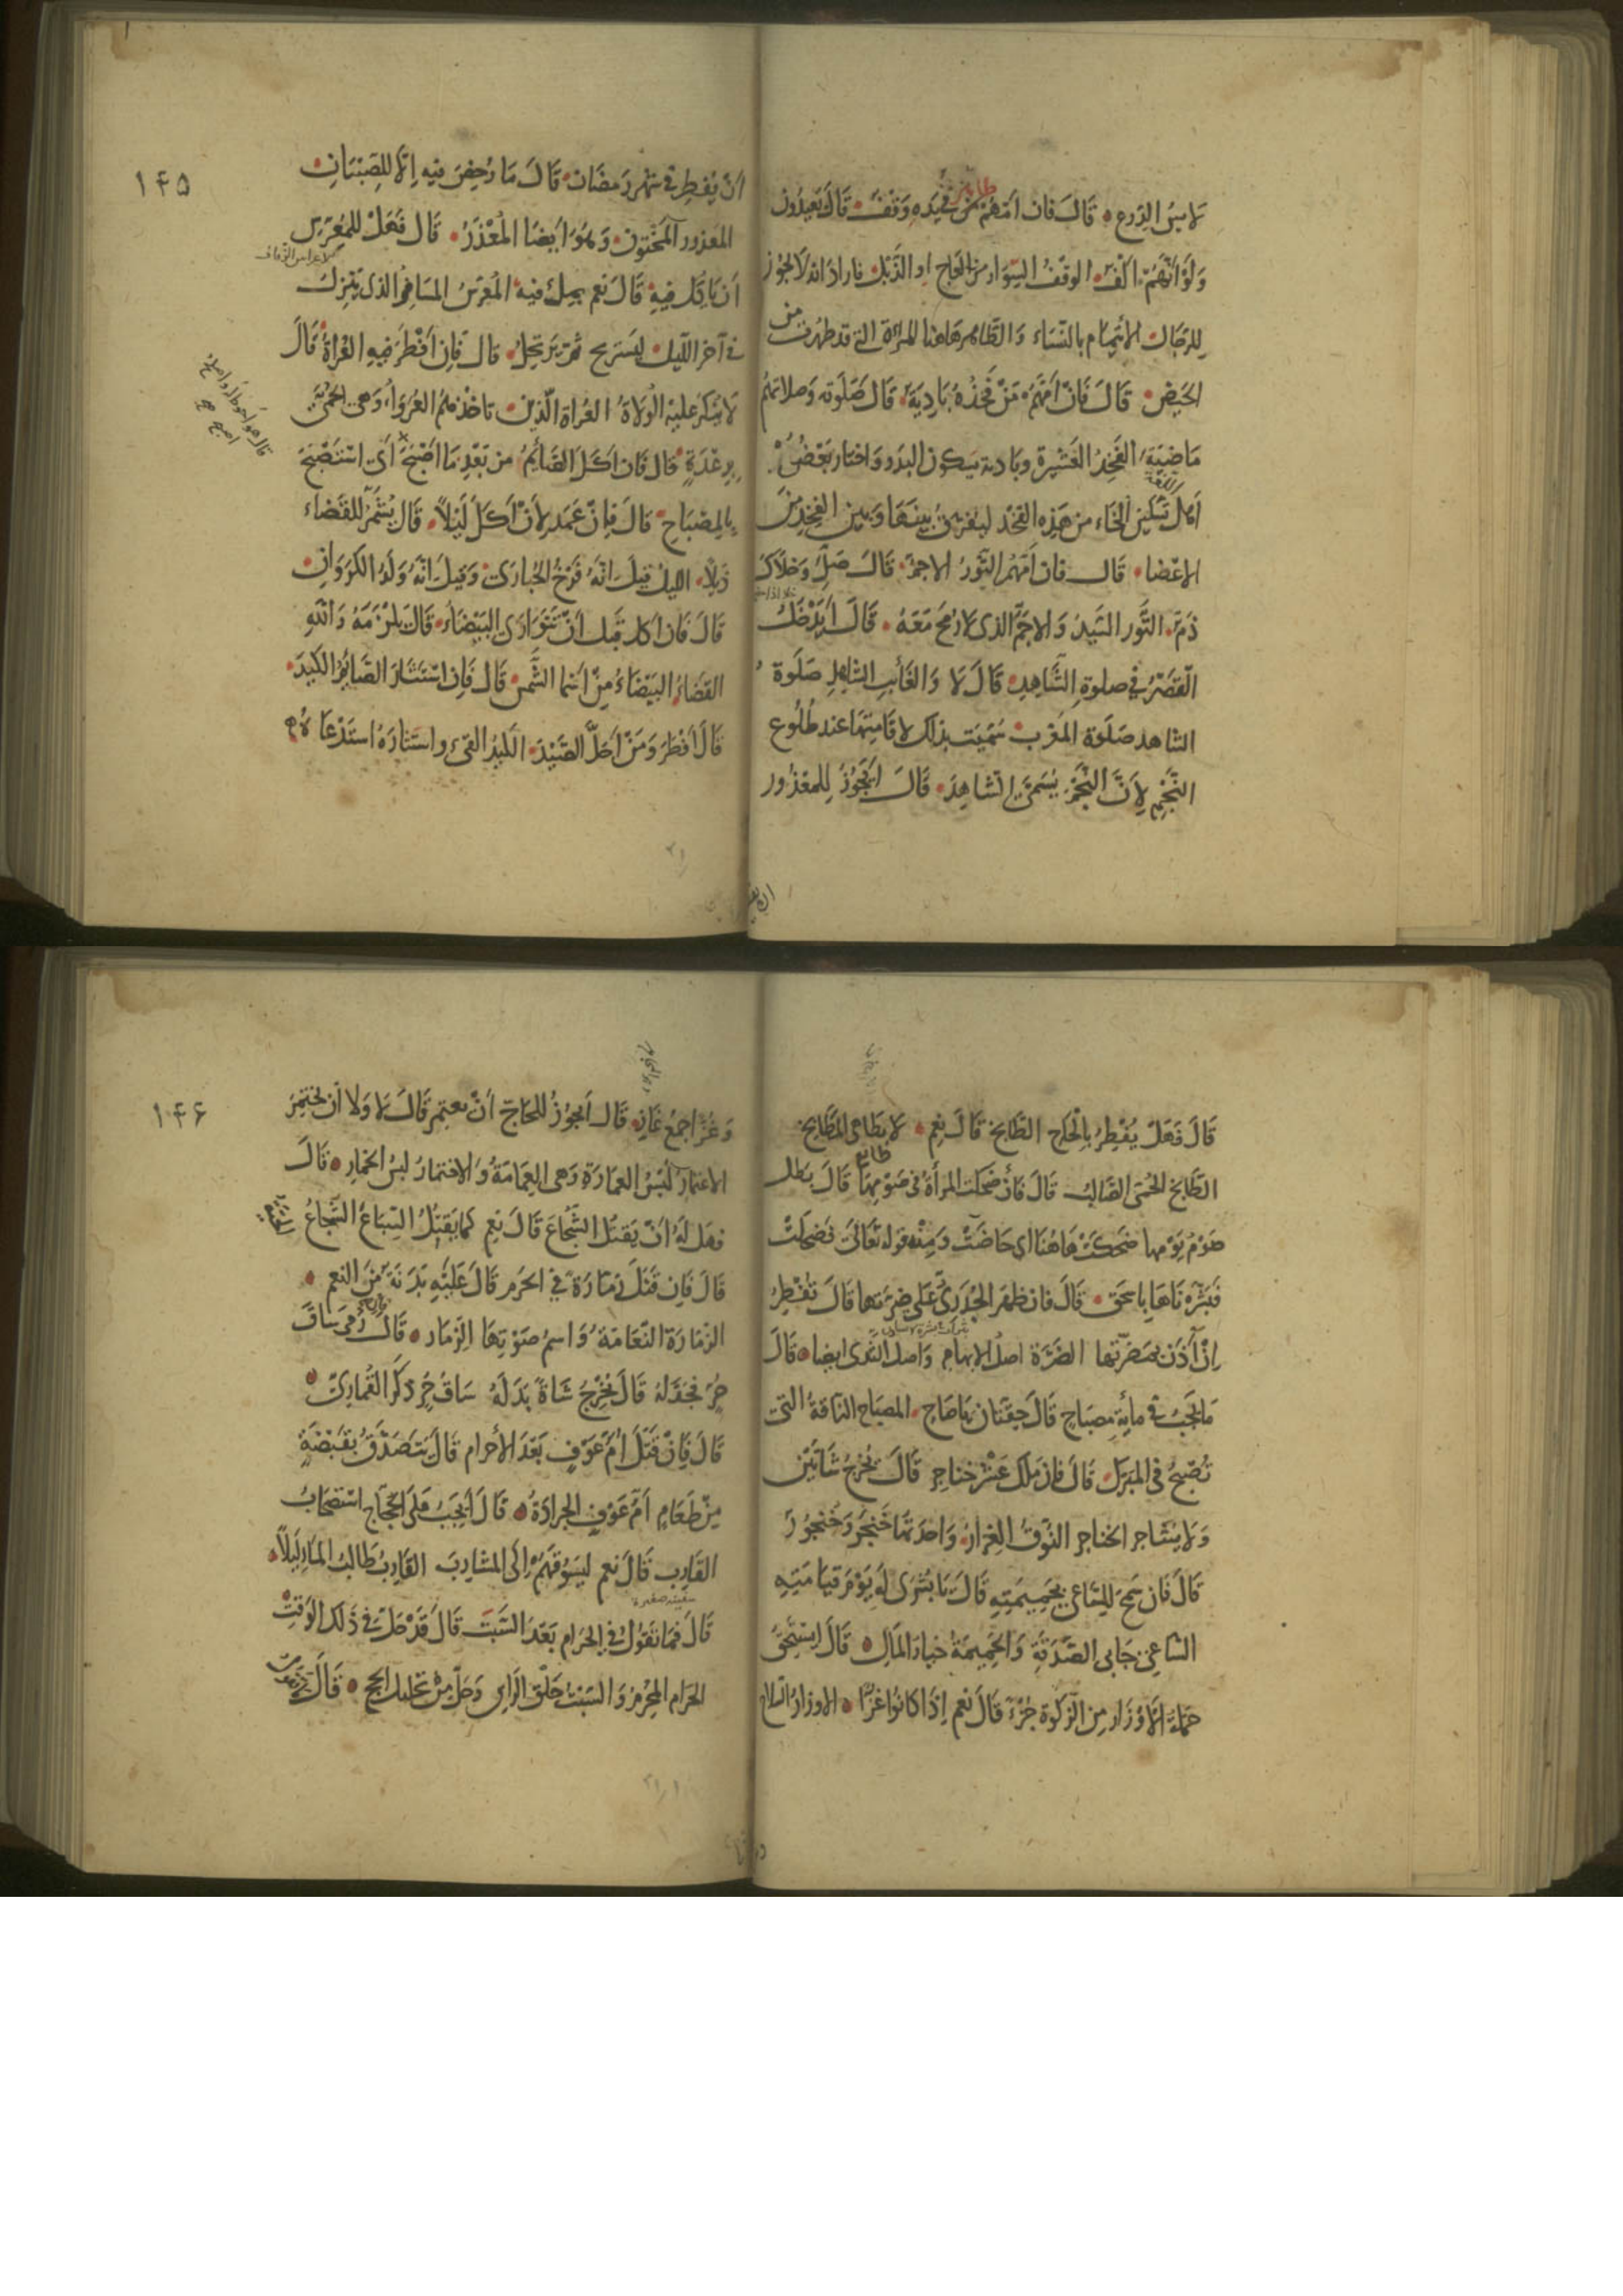 لابس الدرع قال فان امهم من في يده وقف قال يعيدون
ولو انهم الف الوقف السوار من العاج او الذبل فاراد انه لا يجوز
للرجال الائتمام بالنساء والظاهر هاهنا المراة التي قد طهرت من
الحيض قال فان امهم من فخذه بادية قال صلوته وصلاتهم
ماضية الفخذ العشيرة وبادية يسكون البدو واختار بعض
اهل اللغة تسكين الخاء من هذه الفخذ ليفرق بينها وبين الفخذ من
الاعضا قال فان امهم الثور الاجم قال صل وخلاك
ذم الثور السيد والاجم الذى لا رمح معه قال ايدخل
القصر في صلوة الشاهد قال لا والغائب الشاهد صلوة
الشاهد صلوة المغرب سميت بذلك لاقامتها عند طلوع
النجم لان النجم يسمى الشاهد قال ايجوز للمعذور
١۴۵
ان يفطر في شهر رمضان قال ما رخص فيه الا للصبيان
المعذور المختون وهو ايضا المعذر قال فهل للمعرس
ان ياكل فيه قال نعم بملء فيه المعرس المسافر الذى ينزل
في آخر الليل ليستريح ثم يرتحل قال فان افطر فيه العراة قال
لا ينكر عليه الولاة العراة الذين تاخذهم العرواء وهى الحمى
برعدة قال فان اكل الصائم من بعد ما اصبح اى استصبح
بالمصباح قال فان عمد لان اكل ليلا قال يشمر للقضاء
ذيلا الليل قيل انه فرخ الحبارى وقيل انه ولد الكروان
قال فان اكل قبل ان تتوارى البيضاء قال يلزمه والله
القضاء البيضاء من اسما الشمس قال فان استثار الصائم الكيد
قال افطر ومن احل الصيد الكيد القىء واستثاره استدعاه
قال فهل يفطر بالحاح الطابخ قال نعم لا بطاهى المطابخ
الطابخ الحمى الصالب قال فان ضحكت المراة في صومها قال بطل
صوم يومها ضحكت هاهنا اى حاضت ومنه قوله تعالى فضحكت
فبشرناها باسحق قال فان ظهر الجدرى على ضرتها قال تفطر
ان آذن بمضرتها الضرة اصل الابهام واصل الثدى ايضا قال
ما يجب في ماية مصباح قال حقتان يا صاح المصباح الناقة التى
تصبح في المبرك قال فان ملك عشر خناجر قال يخرج شاتين
ولا يشاجر الخناجر النوق الغزار واحدتها خنجر وخنجور
قال فان سمح للساعى بحميمته قال يا بشرى له يوم قيامته
الساعى جابى الصدقة والحميمة خيار المال قال ايستحق
حملة الاوزار من الزكوة جزء قال نعم اذا كانوا غزا الاوزار السلاح
١۴۶
وغزا جمع غاز قال ايجوز للحاج ان يعتمر قال لا ولا ان يختمر
الاعتمار لبس العمارة وهى العمامة والاختمار لبس الخمار قال
فهل له ان يقتل الشجاع قال نعم كما يقتل السباع الشجاع
قال فان قتل زمارة في الحرم قال عليه بدنة من النعم
الزمارة النعامة واسم صوتها الزمار قال فان رمى ساق
حر فجدله قال يخرج شاة بدله ساق حر ذكر القمارى
قال فان قتل ام عوف بعد الاحرام قال يتصدق بقبضة
من طعام ام عوف الجرادة قال ايجب على الحجاج استصحاب
القارب قال نعم ليسوقهم الى المشارب القارب طالب الماء ليلا
قال فما تقول في الحرام بعد السبت قال قد حل في ذلك الوقت
الحرام المحرم والسبت حلق الراس وحل من تحليل الحج قال